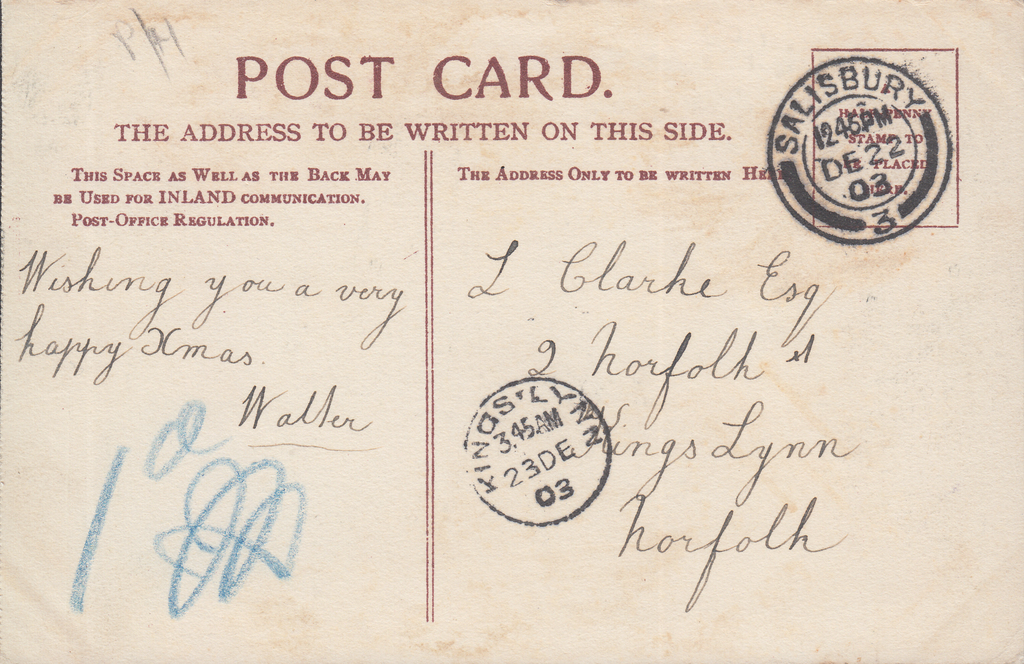 P/H
POST CARD.
THE ADDRESS TO BE WRITTEN ON THIS SIDE.
THIS SPACE AS WELL AS THE BACK MAY
BE USED FOR INLAND COMMUNICATION.
POST-OFFICE REGULATION.
Wishing you a very
happy Xmas.
Walter
1d
THE ADDRESS ONLY TO BE WRITTEN HERE
PENNY
STAMP TO
BE PLACED
SALISBURY
12.45PM
DE 22
03
3
L Clarke Esq
2 Norfolk st
Kings Lynn
Norfolk
KINGS LYNN
3.45AM
23DE
03